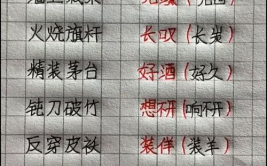 火烧旗杆 长叹(长炭)
精装茅台 好酒(好久)
钝刀破竹 想不开(响不开)
反穿皮袄 装佯(装羊)